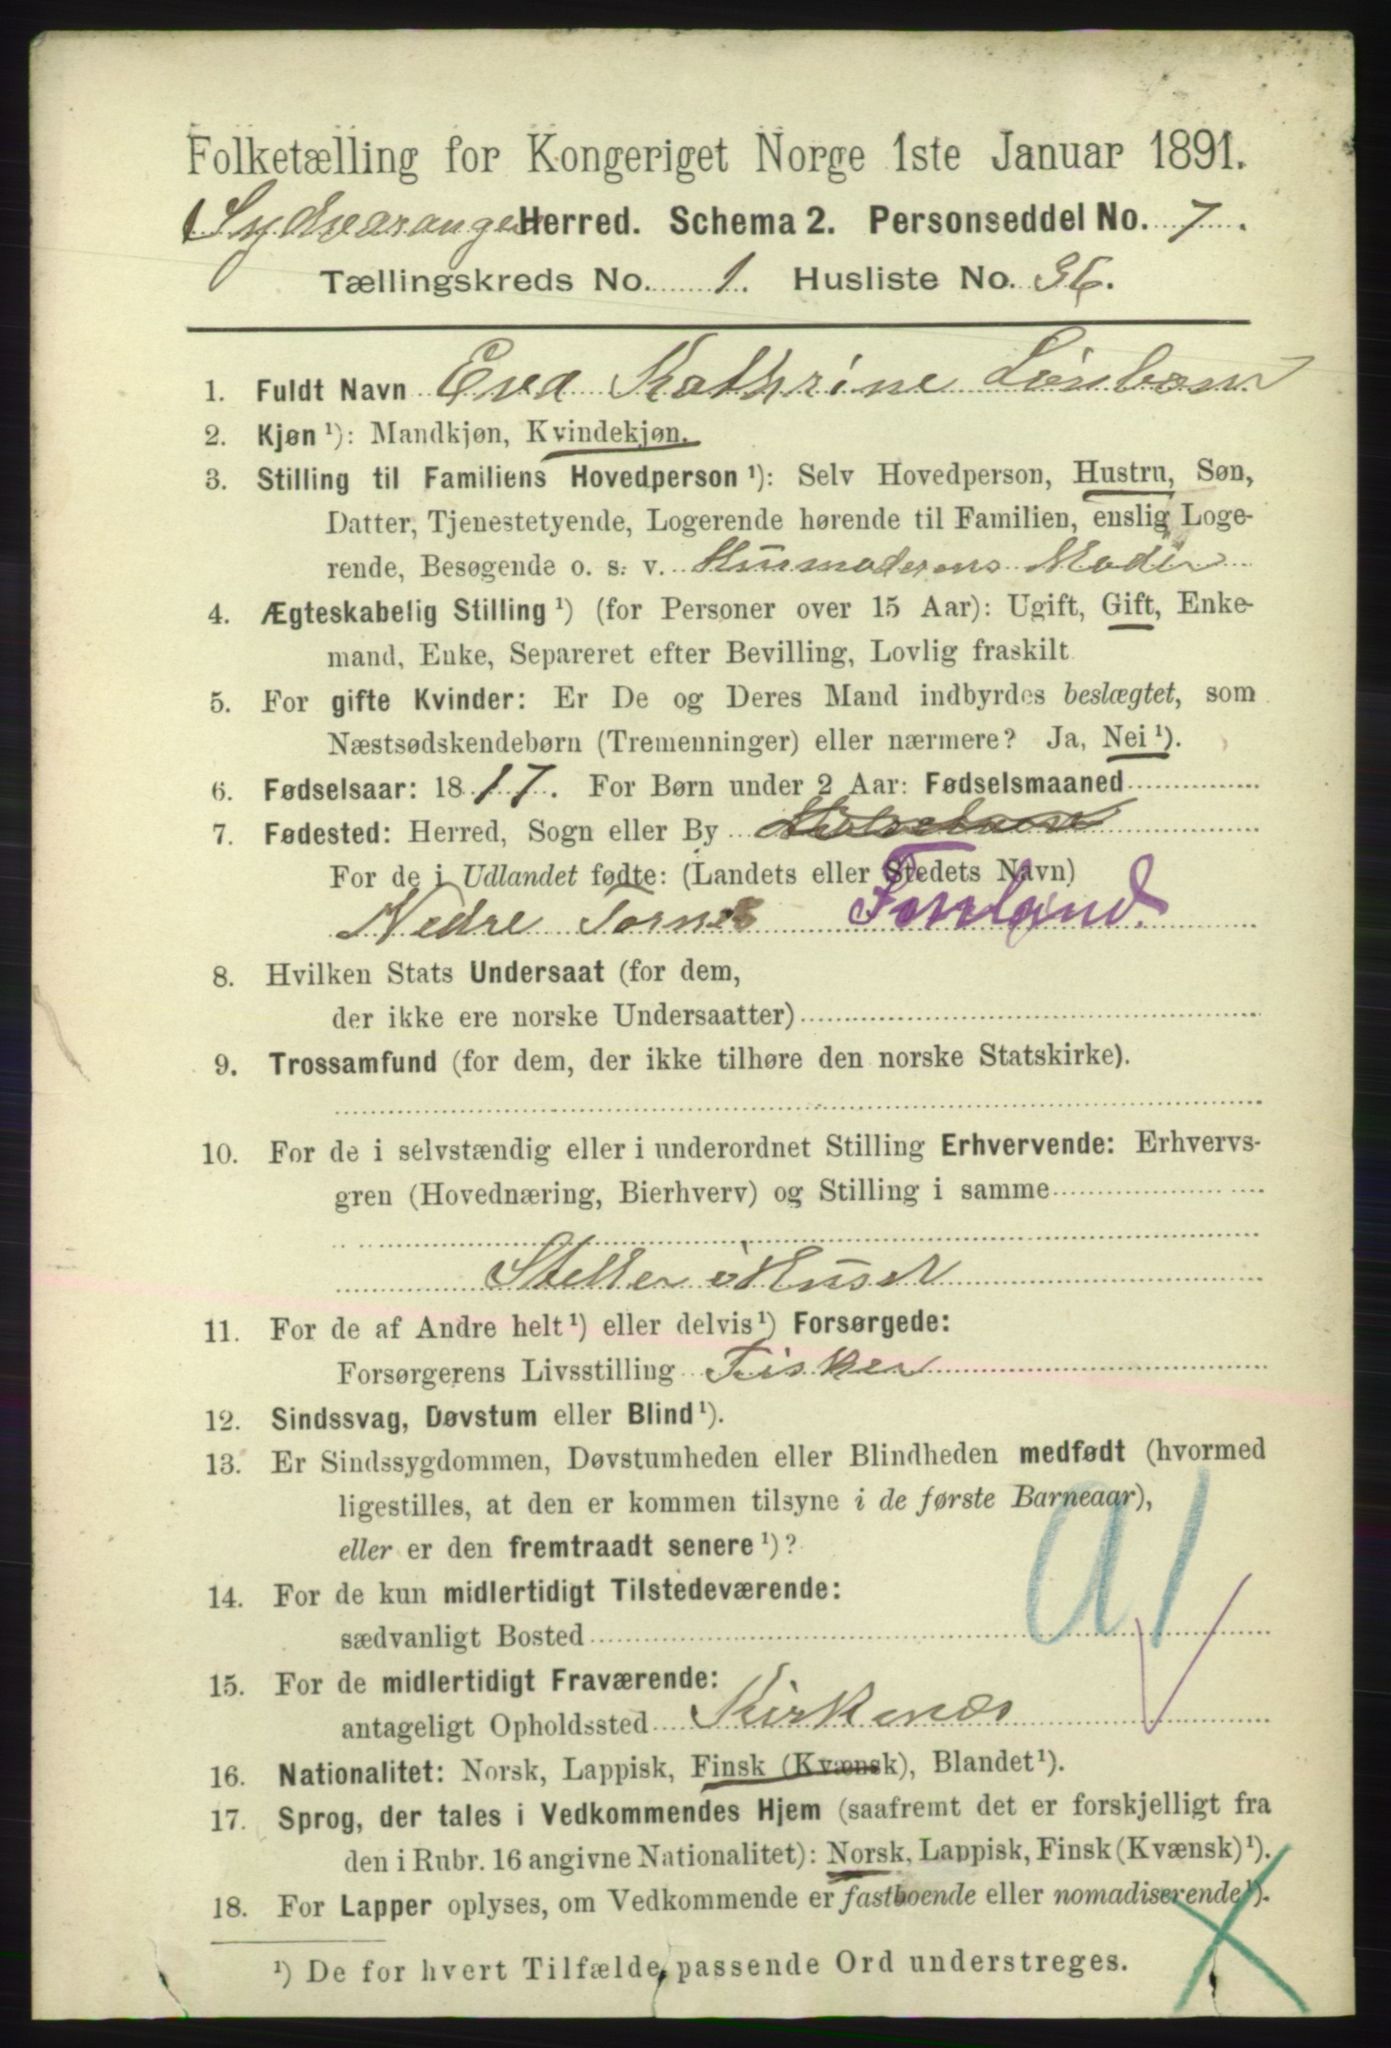 Folketælling for Kongeriget Norge 1ste Januar 1891.
Sydvaranger Herred. Schema 2. Personseddel No. 7.
Tællingskreds No. 1. Husliste No. 36.
1. Fuldt Navn Eva Kathrine
2. Kjøn ¹): Mandkjøn, Kvindekjøn.
3. Stilling til Familiens Hovedperson ¹): Selv Hovedperson, Hustru, Søn,
Datter, Tjenestetyende, Logerende hørende til Familien, enslig Loge-
rende, Besøgende o. s. v. Husmoderens Moder
4. Ægteskabelig Stilling ¹) (for Personer over 15 Aar): Ugift, Gift, Enke-
mand, Enke, Separeret efter Bevilling, Lovlig fraskilt
5. For gifte Kvinder: Er De og Deres Mand indbyrdes beslægtet, som
Næstsødskendebørn (Tremenninger) eller nærmere? Ja, Nei ¹).
6. Fødselsaar: 1817. For Børn under 2 Aar: Fødselsmaaned
7. Fødested: Herred, Sogn eller By
For de i Udlandet fødte: (Landets eller Stedets Navn)
Nedre Torneå Finland.
8. Hvilken Stats Undersaat (for dem,
der ikke ere norske Undersaatter)
9. Trossamfund (for dem, der ikke tilhøre den norske Statskirke).
10. For de i selvstændig eller i underordnet Stilling Erhvervende: Erhvervs-
gren (Hovednæring, Bierhverv) og Stilling i samme
Steller i Huset
11. For de af Andre helt ¹) eller delvis ¹) Forsørgede:
Forsørgerens Livsstilling Fisker
12. Sindssvag, Døvstum eller Blind ¹).
13. Er Sindssygdommen, Døvstumheden eller Blindheden medfødt (hvormed
ligestilles, at den er kommen tilsyne i de første Barneaar),
eller er den fremtraadt senere ¹)?
14. For de kun midlertidigt Tilstedeværende:
sædvanligt Bosted
15. For de midlertidigt Fraværende:
antageligt Opholdssted Kirkenæs
16. Nationalitet: Norsk, Lappisk, Finsk (Kvænsk), Blandet ¹).
17. Sprog, der tales i Vedkommendes Hjem (saafremt det er forskjelligt fra
den i Rubr. 16 angivne Nationalitet): Norsk, Lappisk, Finsk (Kvænsk) ¹).
18. For Lapper oplyses, om Vedkommende er fastboende eller nomadiserende ¹).
¹) De for hvert Tilfælde passende Ord understreges.